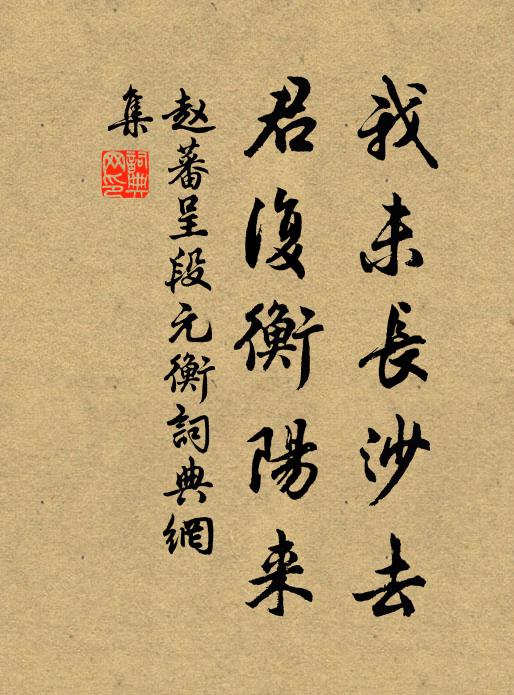 我未長沙去
君復衡陽来
赵蕃呈段元衡詞典網
集
詞典
网印